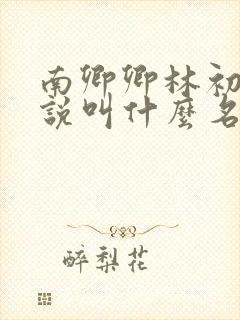 南卿卿林初
說叫什麼名
醉梨花